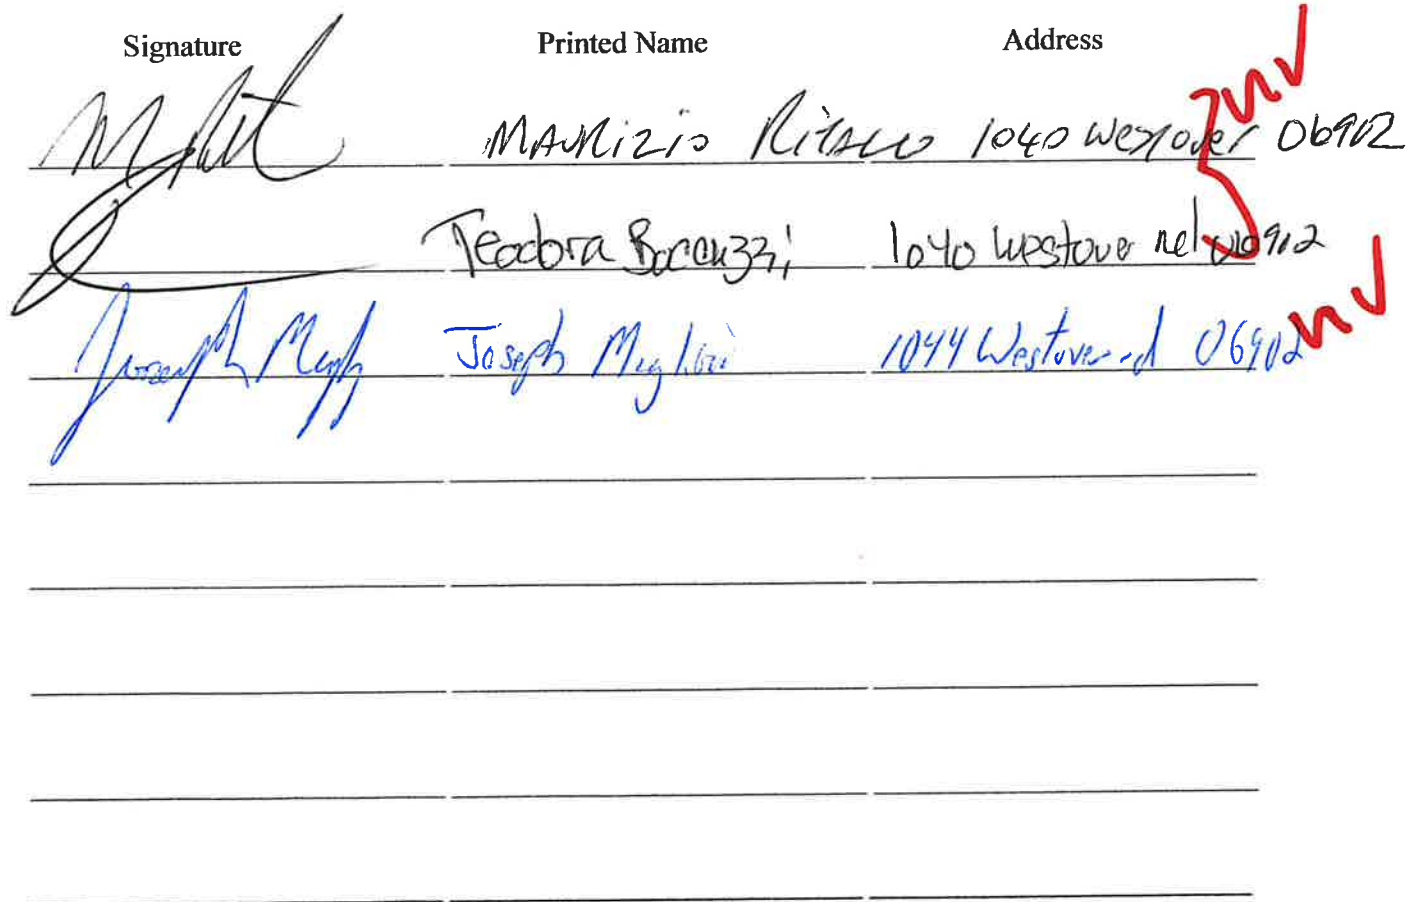 Signature Printed Name Address
MAURizio Ritacco 1040 Westover 06902
Teodora Bocuzzi 1040 Westover rd 06902
Joseph Joseph 1044 Westover rd 06902